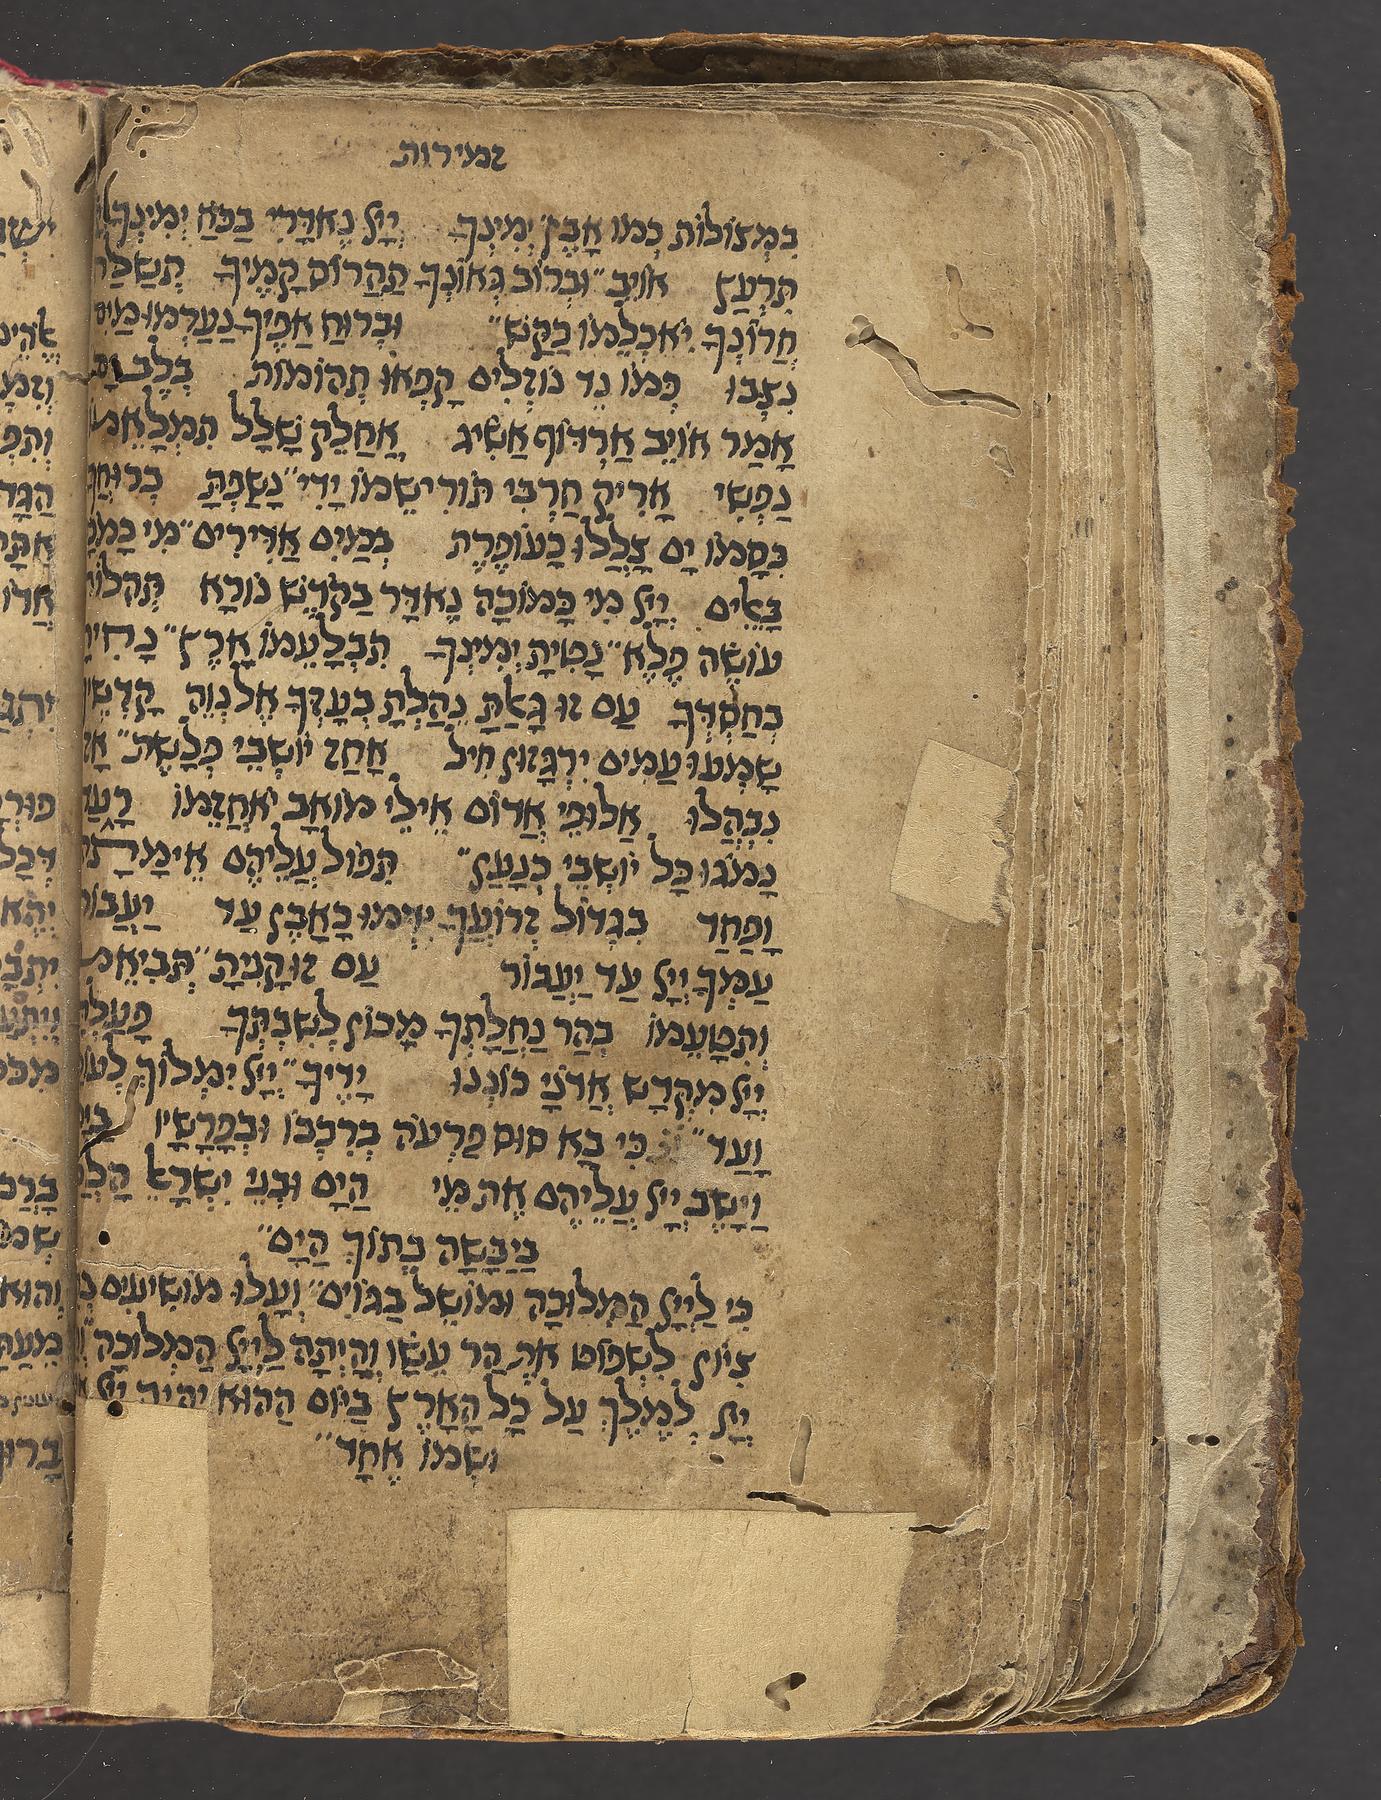 זמירות
במצולות כמו אבן ימינך ייי נאדרי בכח ימינך
תרעץ אויב וברוב גאונך תהרוס קמיך תשלח
חרונך יאכלמו כקש וברוח אפיך נערמו מים
נצבו כמו נד נוזלים קפאו תהומות בלב ים
אמר אויב ארדוף אשיג אחלק שלל תמלאמו
נפשי אריק חרבי תורישמו ידי נשפת ברוחך
כסמו ים צללו כעופרת במים אדירים מי כמכ
באלים ייי מי כמוכה נאדר בקדש נורא תהלות
עושה פלא נטית ימינך תבלעמו ארץ נחית
בחסדך עם זו גאלת נהלת בעזך אל נוה קדשיך
שמעו עמים ירגזון חיל אחז יושבי פלשת אז
נבהלו אלופי אדום אילי מואב יאחזמו רעד
נמוגו כל יושבי כנען תפול עליהם אימתה
ופחד בגדול זרועך ידמו כאבן עד יעבור
עמך ייי עד יעבור עם זו קנית תביאמו
ותטעמו בהר נחלתך מכון לשבתך פעלת
ייי מקדש אדני כוננו ידיך ייי ימלוך לעולם
ועד כי בא סוס פרעה ברכבו ובפרשיו בים
וישב ייי עליהם את מי הים ובני ישראל הלכו
ביבשה בתוך הים
כי לייי המלוכה ומושל בגוים ועלו מושיעים
ציון לשפוט את הר עשו והיתה לייי המלוכה
ייי למלך על כל הארץ ביום ההוא יהיה ייי
ושמו אחד